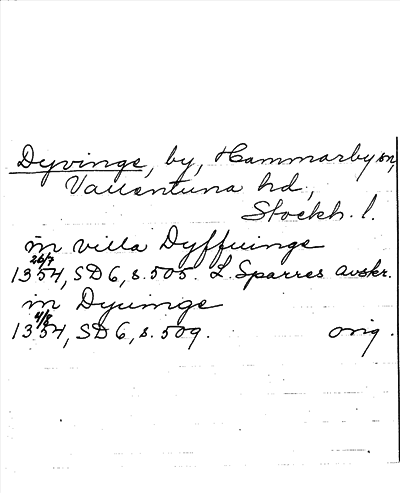 Dyvinge, by, Hammarby sn,
Vallentuna hd,
Stockh. l.
in villa Dyffuinge
26/7
1354, SD 6, s. 505. L. Sparres avskr.
in Dyuinge
4/8
1354, SD 6, s. 509. orig.